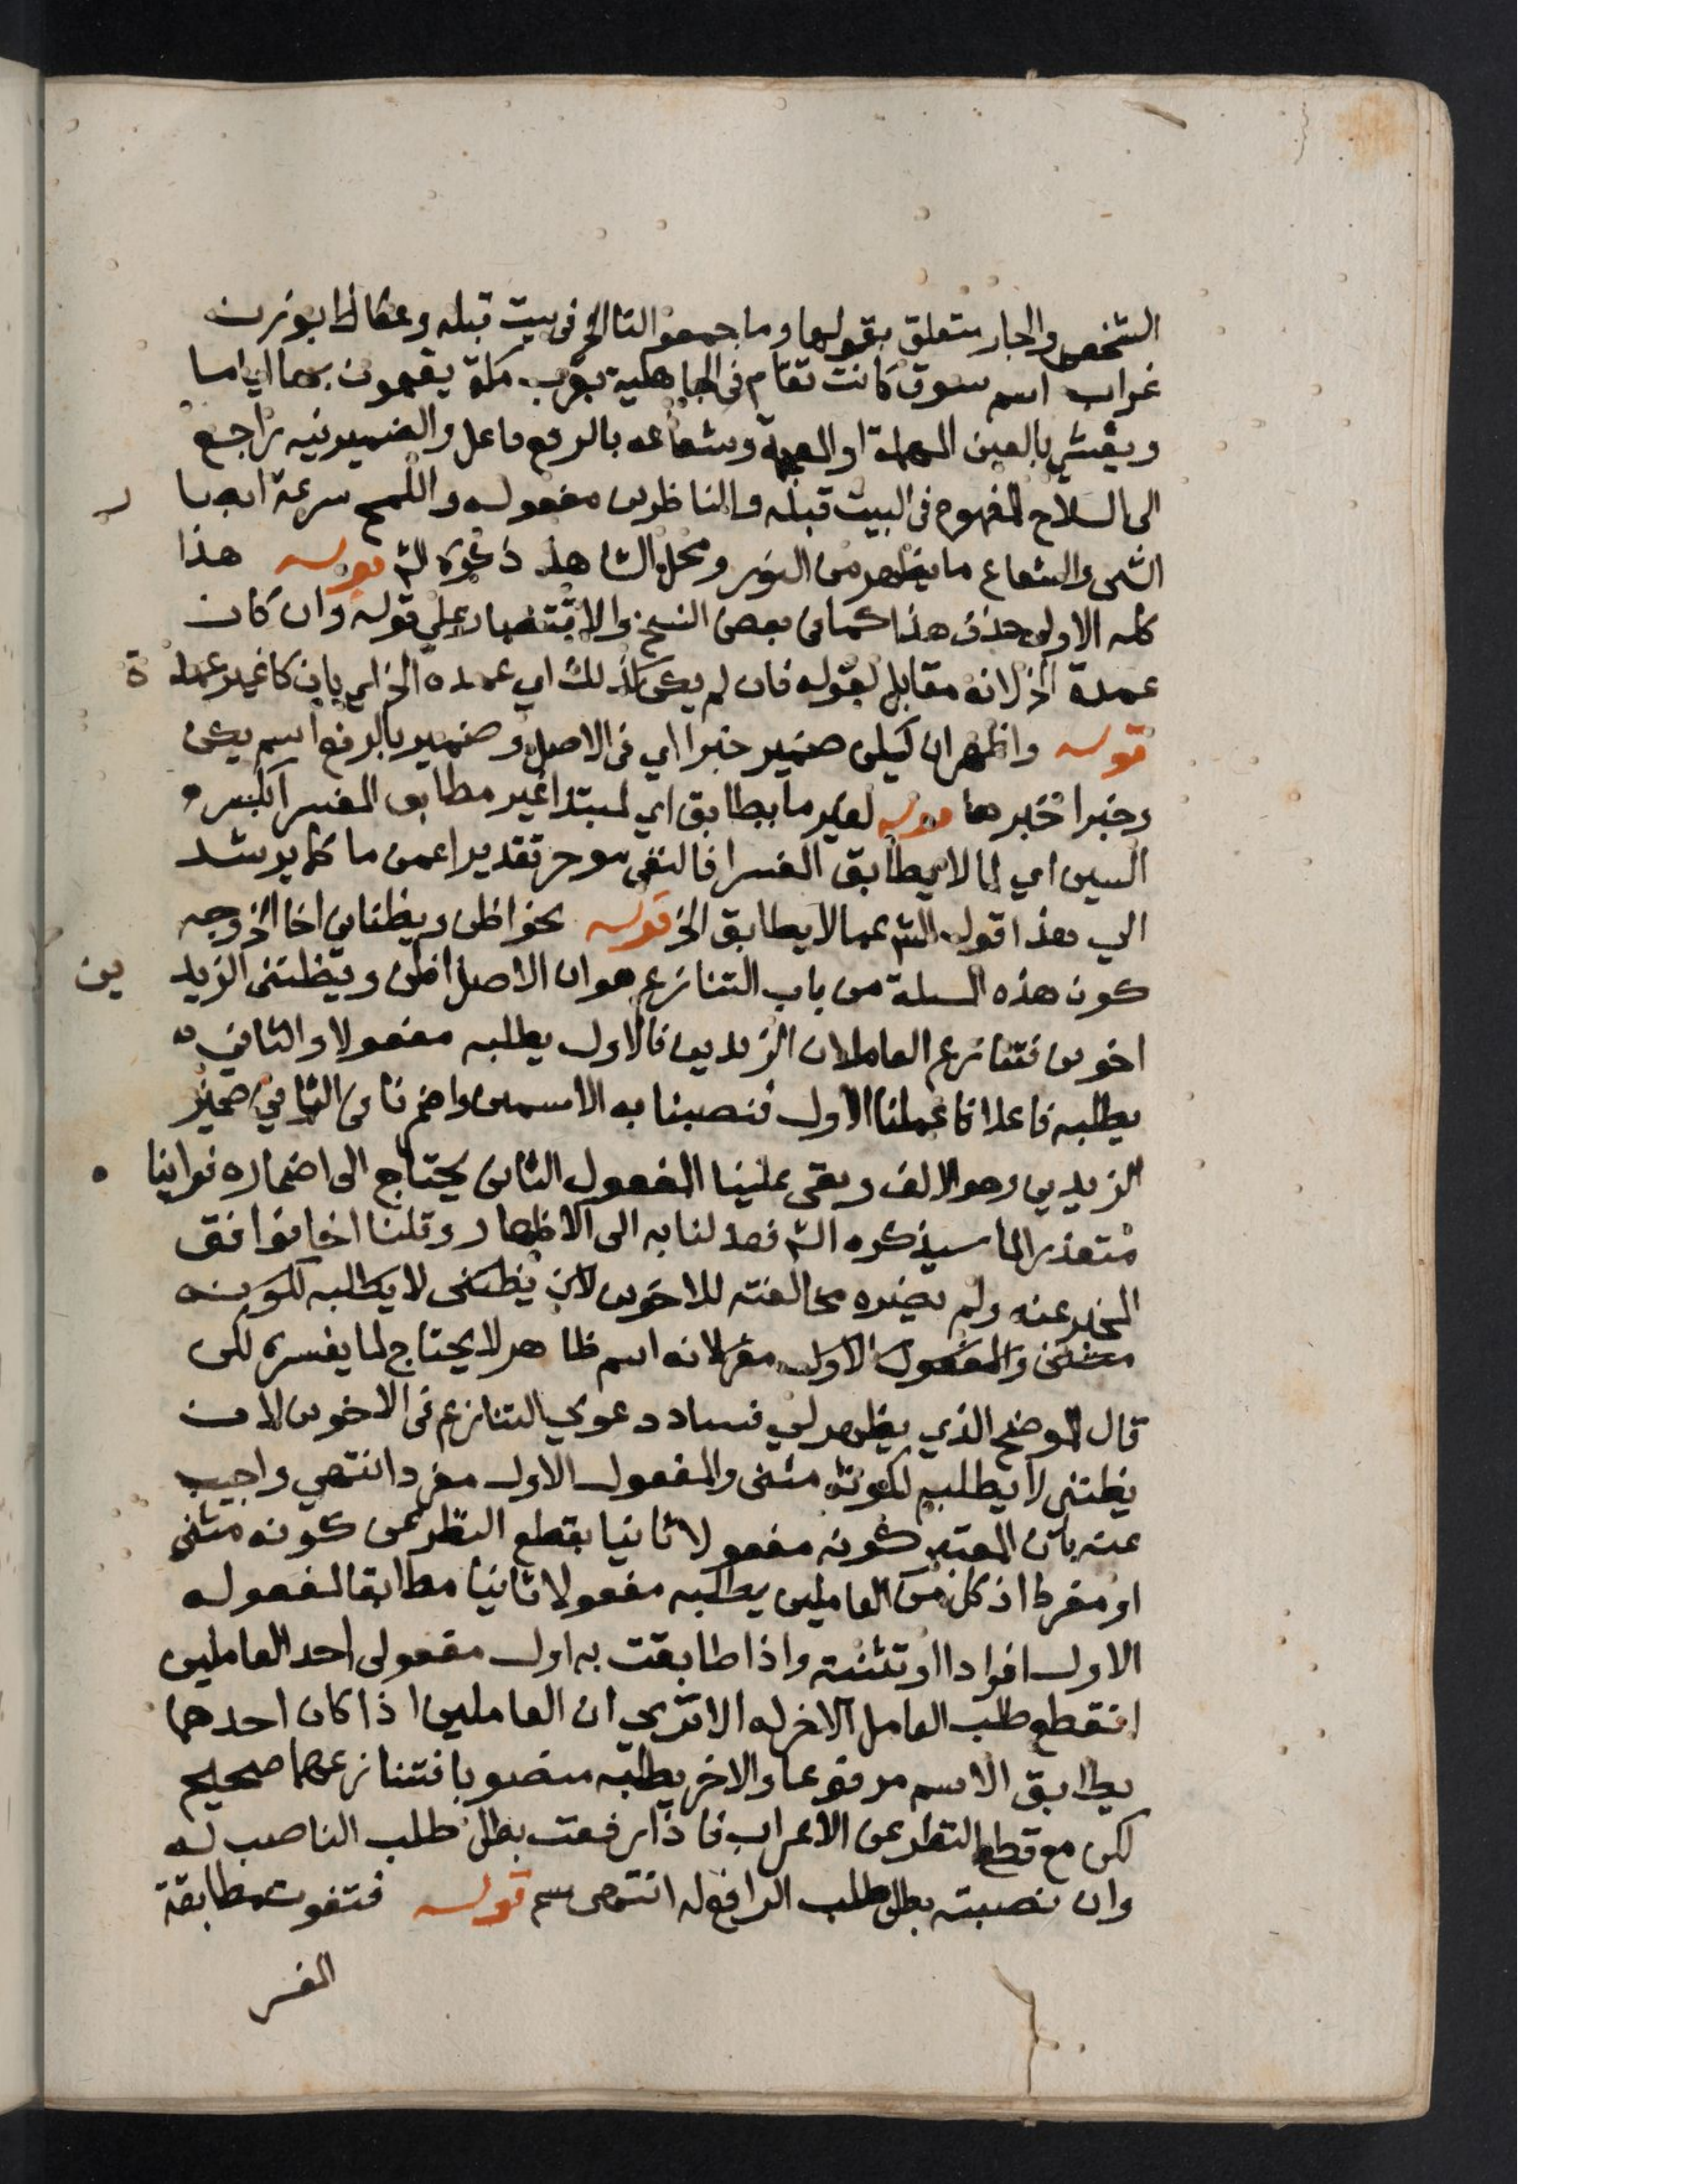 الشخص والجار متعلق بقولها وما جمعوا لنا الخ في بيت قبله وعكاظ بوزن
غراب اسم سوق كانت تقام في الجاهلية بقرب مكة يقيمون بها اياما
ويعشى بالعين المهملة او المعجمة وشعاعه بالرفع فاعل والضمير فيه راجع
الى السلاح المفهوم في البيت قبله والناظرين مفعوله واللمح سرعة ابصا ر
الشى والشعاع ما يظهر من النور ومحل الشاهد ذكره الش قوله هذا
كله الاولى حذف هذا كما في بعض النسخ والاقتصار على قوله وان كان
عمدة الخ لانه مقابل لقوله فان لم يكن كذلك اي عمده الخ اي بان كا غير عمد ة
قوله واظهر ان يكن ضمير خبرا اي في الاصل وضمير بالرفع اسم يكن
وخبرا خبرها قوله لغير ما يطابق اي لمبتدا غير مطابق المفسر بكسر
السين اي لما لا يطابق المفسرا فالنفي موخر تقديرا عن ما كما يرشد
الي هذا قول الش عما لا يطابق الخ قوله نحو اظن ويظناني اخا الخ وجه
كون هذه المسلة من باب التنازع هو ان الاصل اظن ويظنني الزيد ين
اخوين فتنازع العاملان الزيدين فالاول يطلبه مفعولا والثاني
يطلبه فاعلا فاعملنا الاول فنصبنا به الاسمين واضمرنا في الثاني ضمير
الزيدين وهو الالف وبقى علينا المفعول الثاني يحتاج الى اضماره فراينا
متعذرا لما سيذكره الش فعدلنا به الى الاظهار وقلنا اخا فوافق
المخبر عنه ولم يضره مخالفته للاخوين لان يظنني لا يطلبه لكونه
مثنى والمفعول الاول مفر لانه اسم ظاهر لا يحتاج لما يفسره لكن
قال الموضح الذي يظهر لي فساد دعوي التنازع في الاخوين لان
يظنني لا يطلبه لكونه مثنى والمفعول الاول مفردا انتهي واجيب
عنه بان المعتبر كونه مفعولا ثانيا بقطع النظر عن كونه مثنى
او مفردا اذ كل من العاملين يطلبه مفعولا ثانيا مطابقا لمفعوله
الاول افرادا او تثنية واذا طابقت به اول مفعولى احد العاملين
انقطع طلب العامل الاخر له الا تري ان العاملين اذا كان احدهما
يطابق الاسم مرفوعا والاخر يطلبه منصوبا فتنازعهما صحيح
لكن مع قطع النظر عن الاعراب فاذا رفعت بطل طلب الناصب له
وان نصبته بطل طلب الرافع له انتهى سم قوله فتفوت مطابقة
المفسر